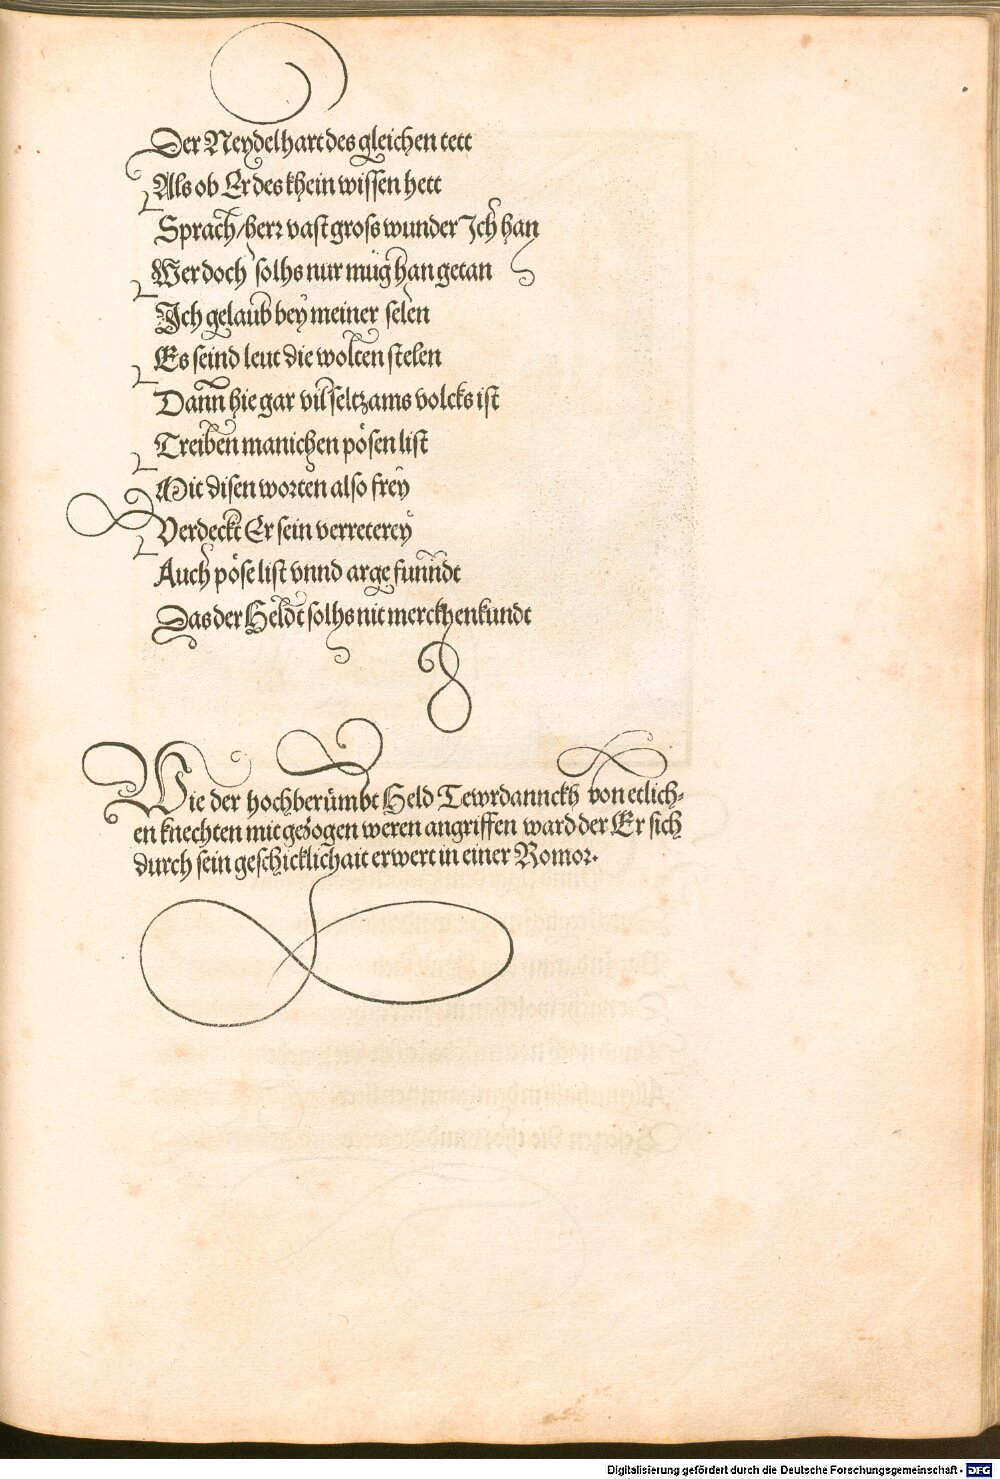 Der Neydelhart des gleichen tett
Als ob Er des khein wissen hett
Sprach/herr vast gross wunder Ich han
Wer doch solhs nur müg han getan
Ich gelaub bey meiner selen
Es seind leut die wolten stelen
Dann hie gar vil seltzams volcks ist
Treiben manichen pösen list
Mit disen worten also frey
Verdeckt Er sein verreterey
Auch pöse list vnnd arge funndt
Das der Heldt solhs nit merckhen kundt
Wie der hochberümbt Held Tewrdannckh von etlich-
en knechten mit gezogen weren angriffen ward der Er sich
durch sein geschicklichait erwert in einer Romor.
Digitalisierung gefördert durch die Deutsche Forschungsgemeinschaft - DFG